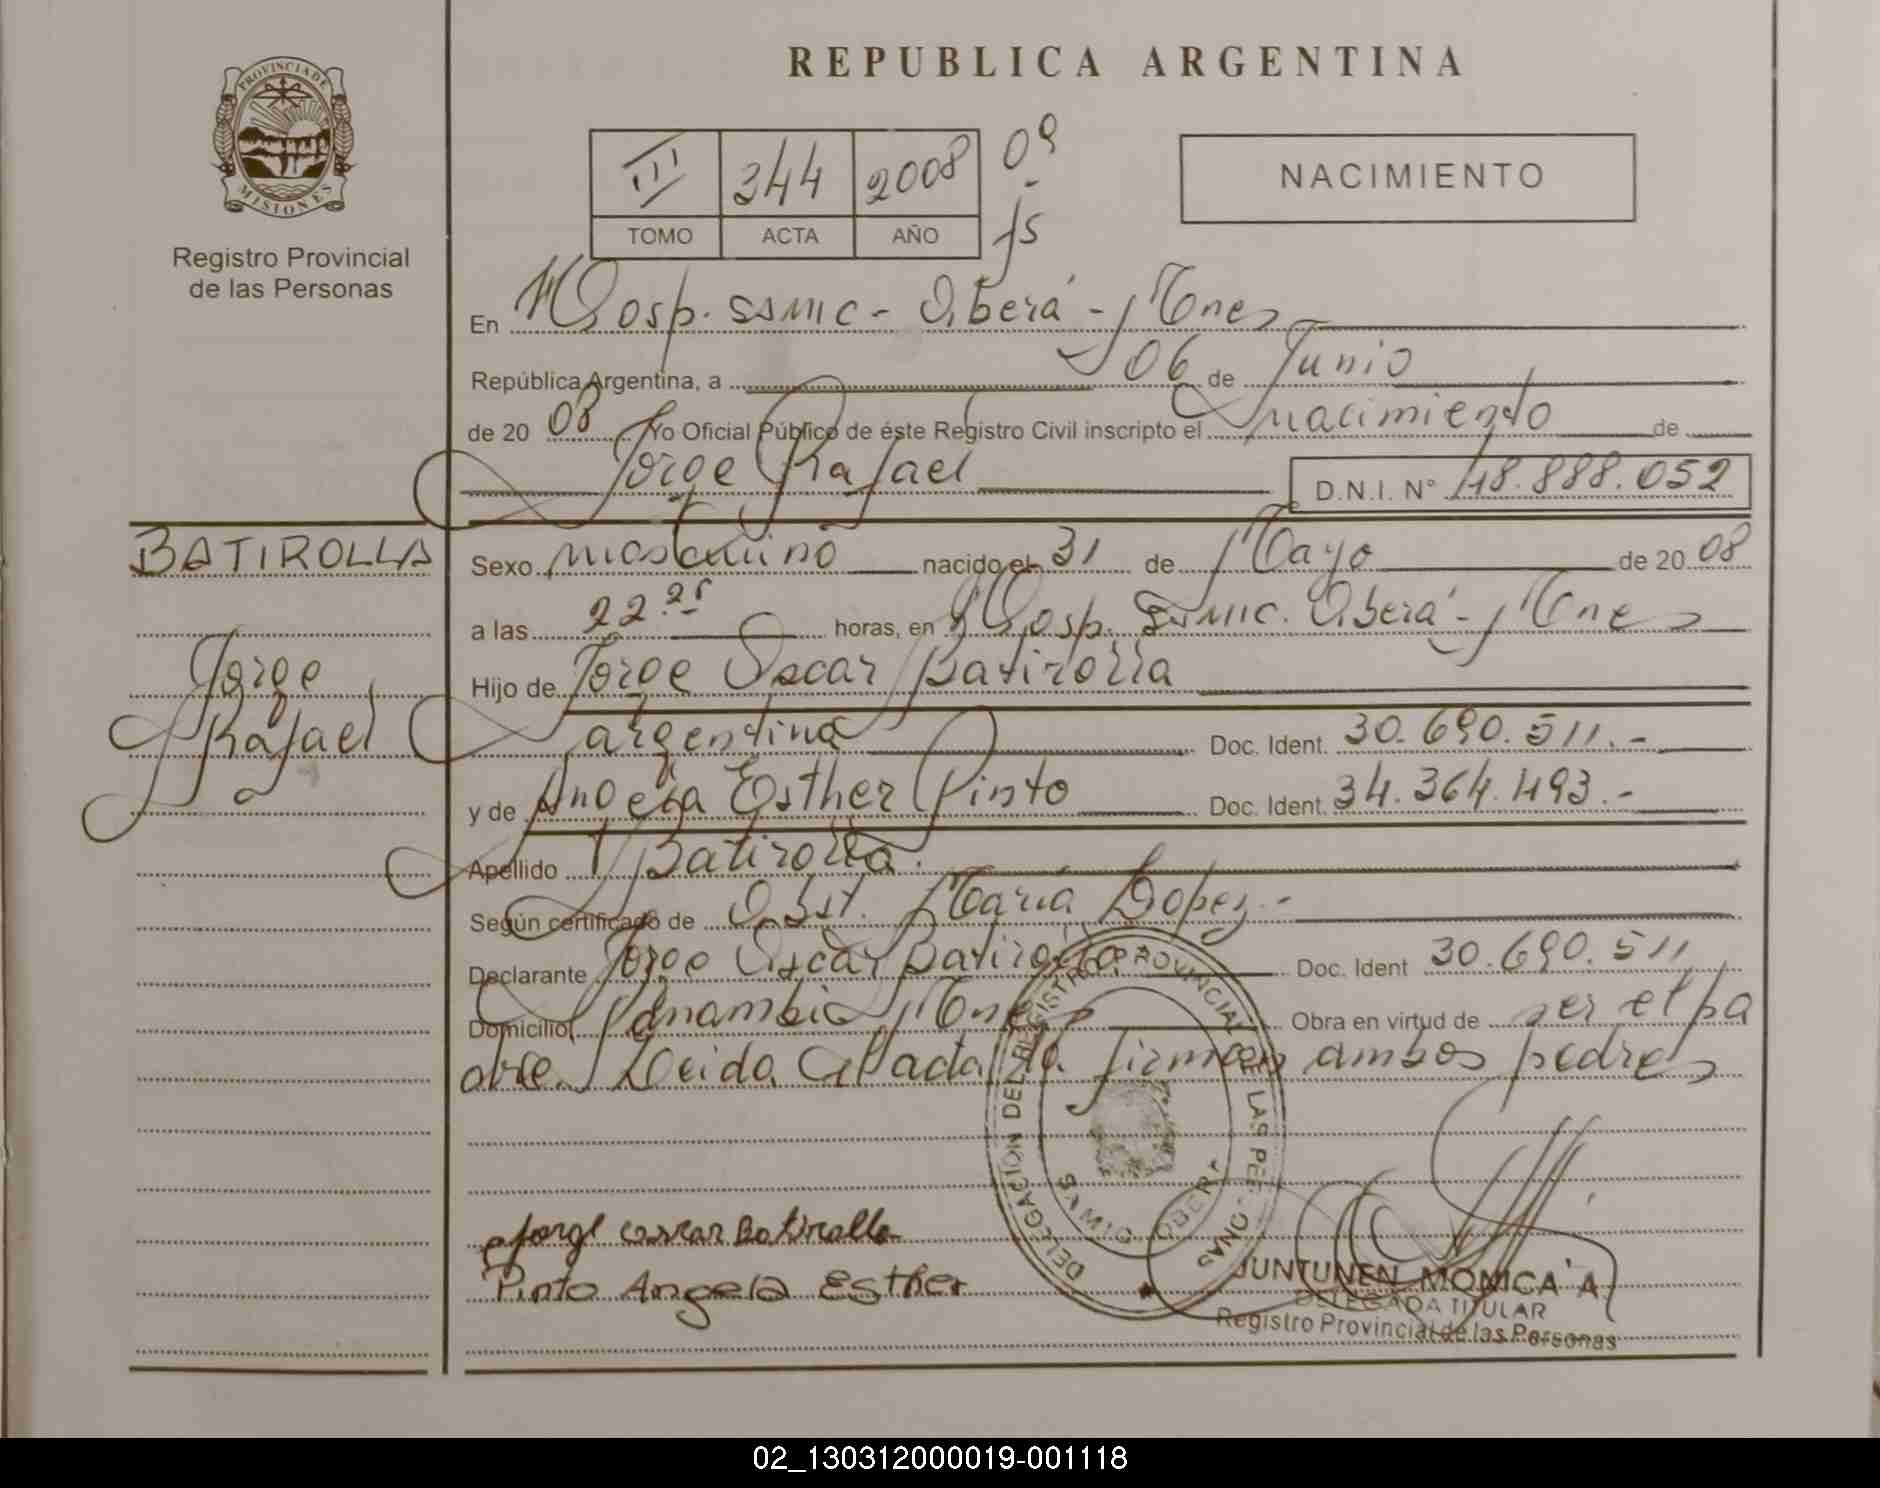 PROVINCIA DE
MISIONES
Registro Provincial
de las Personas
REPUBLICA ARGENTINA
III 344 2008
TOMO ACTA AÑO
NACIMIENTO
En Hosp. SSMIC - Oberá - Mnes
República Argentina, a 06 de Junio
de 20 08 Yo Oficial Público de éste Registro Civil inscripto el nacimiento de
Jorge Rafael D.N.I. N° 48.888.052
BATIROLLA
Jorge
Rafael
Sexo masculino nacido el 31 de Mayo de 20 08
a las 22.25 horas, en Hosp. SSMIC. Oberá - Mnes
Hijo de Jorge Oscar Batirolla
argentina Doc. Ident. 30.690.511.-
y de Angela Esther Pinto Doc. Ident. 34.364.493.-
Apellido Batirolla.
Según certificado de Obst. María Lopez.-
Declarante Jorge Oscar Batirolla Doc. Ident 30.690.511
Domicilio Panambi Mnes Obra en virtud de ser el pa
dre. Leida el acta la firman ambos padres
Jorge oscar Batirolla
Pinto Angela Esther
DELEGACION DEL REGISTRO PROVINCIAL DE LAS PERSONAS
OBERA
JUNTUNEN MONICA A
DELEGADA TITULAR
Registro Provincial de las Personas
02_130312000019-001118